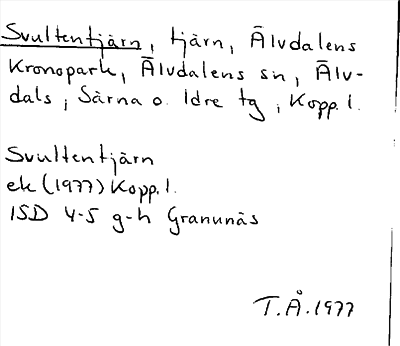 Svultentjärn, tjärn, Älvdalens
Kronopark, Älvdalens sn, Älv-
dals, Särna o. Idre tg, Kopp. l.
Svultentjärn
ek (1977) Kopp. l.
ISD 4-5 g-h Granunäs
T.Å. 1977